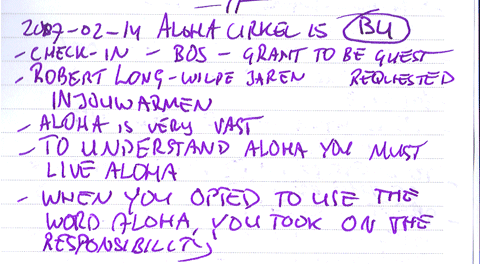 2007-02-14 ALOHA CIRKEL IS B4
- CHECK-IN - BOS - GRANT TO BE GUEST
- ROBERT LONG - WILDE JAREN REQUESTED
IN JOUW ARMEN
- ALOHA IS VERY VAST
- TO UNDERSTAND ALOHA YOU MUST
LIVE ALOHA
- WHEN YOU OPTED TO USE THE
WORD ALOHA, YOU TOOK ON THE
RESPONSIBILITY